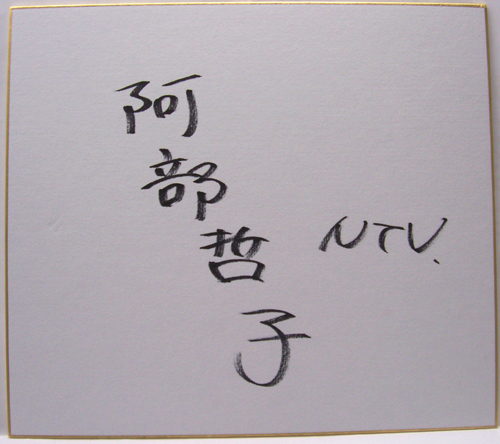 阿部哲子
NTV.